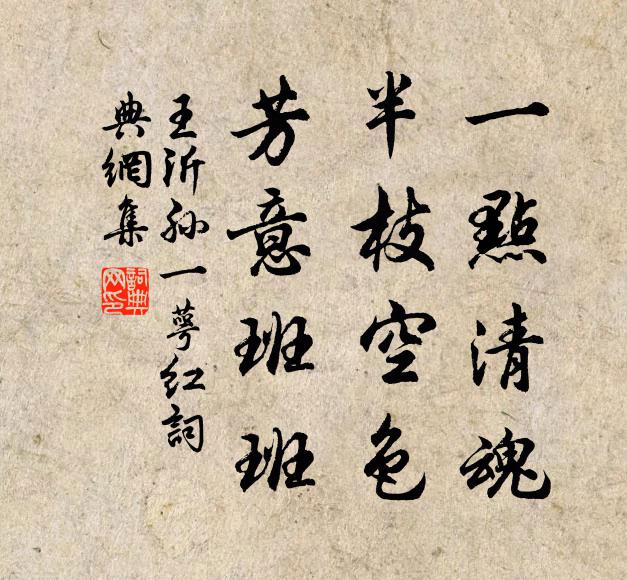 一點清魂
半枝空色
芳意班班
王沂孙一萼红詞
典網集
詞典网印